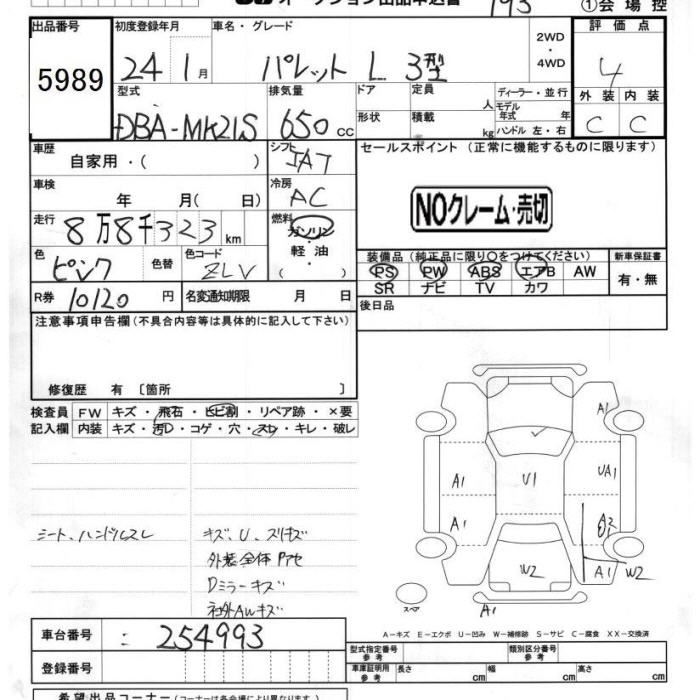 オークション出品申込書 193 ①会場控
出品番号 初度登録年月 車名・グレード 評価点
5989 24 1月 パレット L 3型 2WD・4WD 4
型式 排気量 ドア 定員 人 ディーラー・並行 外装 内装
DBA-MK21S 650cc 形状 積載 kg モデル年式 年 ハンドル 左・右 C C
車歴 自家用・( ) シフト IA7 セールスポイント (正常に機能するものに限ります)
車検 年 月(日) 冷房 AC
NOクレーム・売切
走行 8万8千323km 燃料 ガソリン・軽油・( )
色 ピンク 色替 色コード ZLV
装備品 (純正品に限り〇をつけてください) 新車保証書
PS PW ABS エアB AW 有・無
SR ナビ TV カワ
R券 10120円 名変通知期限 月 日 後日品
注意事項申告欄(不具合内容等は具体的に記入して下さい)
修復歴 有 〔箇所 〕
検査員 FW キズ・飛石・ヒビ割・リペア跡・×要
記入欄 内装 キズ・汚レ・コゲ・穴・スレ・キレ・破レ
A1
A1 U1 UA1
A1 A2
W2 A1 W2
A1
スペア
シート、ハンドルスレ キズ、U、スリキズ
外装全体Pアセ
Dミラーキズ
社外AWキズ
A-キズ E-エクボ U-凹み W-補修跡 S-サビ C-腐食 XX-交換済
車台番号 : 254993
型式指定番号 参考 類別区分番号 参考
登録番号 車庫証明用 参考 長さ cm 幅 cm 高さ cm
希望出品コーナー(コーナーは各会場により異なります)